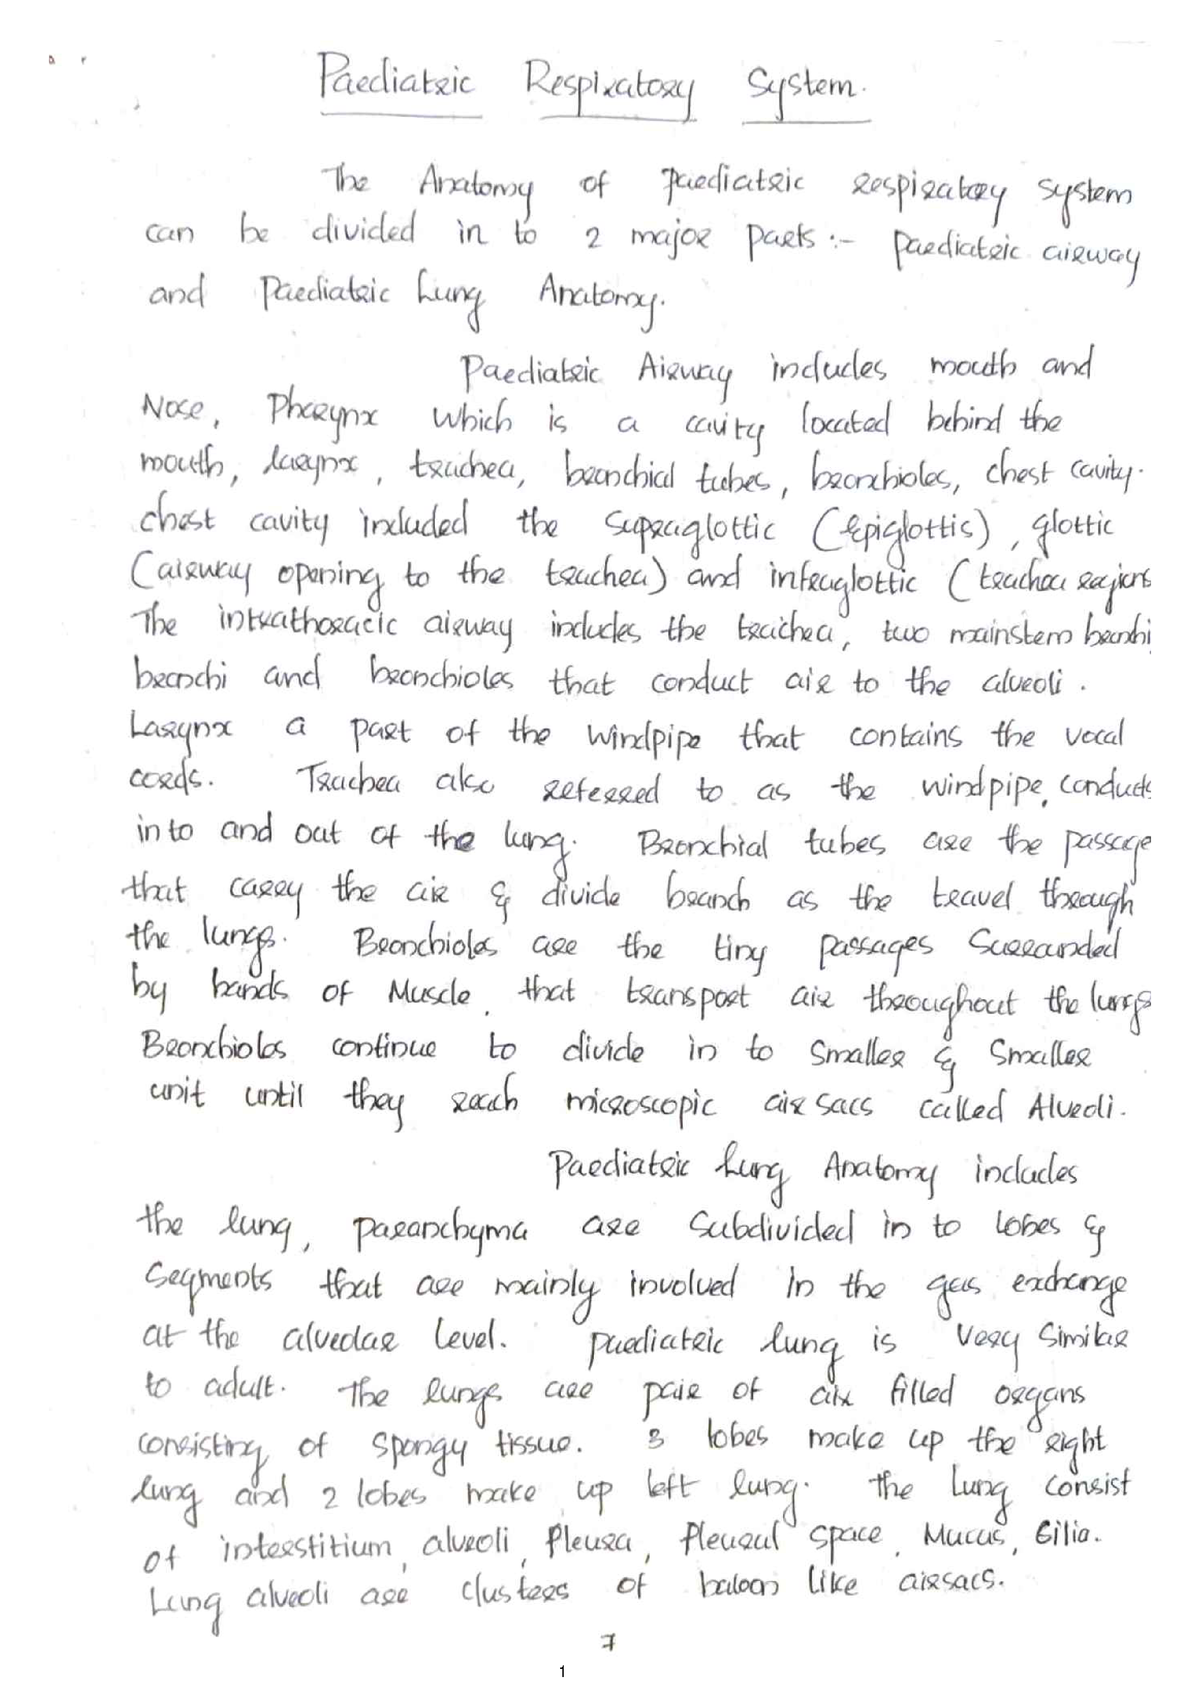 Paediatric Respiratory System.
The Anatomy of paediatric respiratory system
can be divided in to 2 major parts :- paediatric airway
and Paediatric Lung Anatomy.
Paediatric Airway includes mouth and
Nose, Pharynx which is a cavity located behind the
mouth, larynx, trachea, bronchial tubes, bronchioles, chest cavity.
chest cavity included the Supraglottic (Epiglottis), glottic
(airway opening to the trachea) and infraglottic (trachea regions
The intrathoracic airway includes the trachea, two mainstem bronchi
bronchi and bronchioles that conduct air to the alveoli.
Larynx a part of the windpipe that contains the vocal
cords. Trachea also referred to as the windpipe, conducts
in to and out of the lung. Bronchial tubes are the passage
that carry the air & divide branch as the travel through
the lungs. Bronchioles are the tiny passages Surrounded
by bands of Muscle, that transport air throughout the lungs
Bronchioles continue to divide in to smaller & smaller
unit until they reach microscopic air sacs called Alveoli.
Paediatric Lung Anatomy includes
the lung, paranchyma are Subdivided in to lobes &
Segments that are mainly involved in the gas exchange
at the alveolar level. paediatric lung is very similar
to adult. The lungs are pair of air filled organs
consisting of spongy tissue. 3 lobes make up the right
lung and 2 lobes make up left lung. The lung consist
of interstitium, alveoli, Pleura, Pleural space, Mucus, Cilia.
Lung alveoli are clusters of baloon like airsacs.
7
1